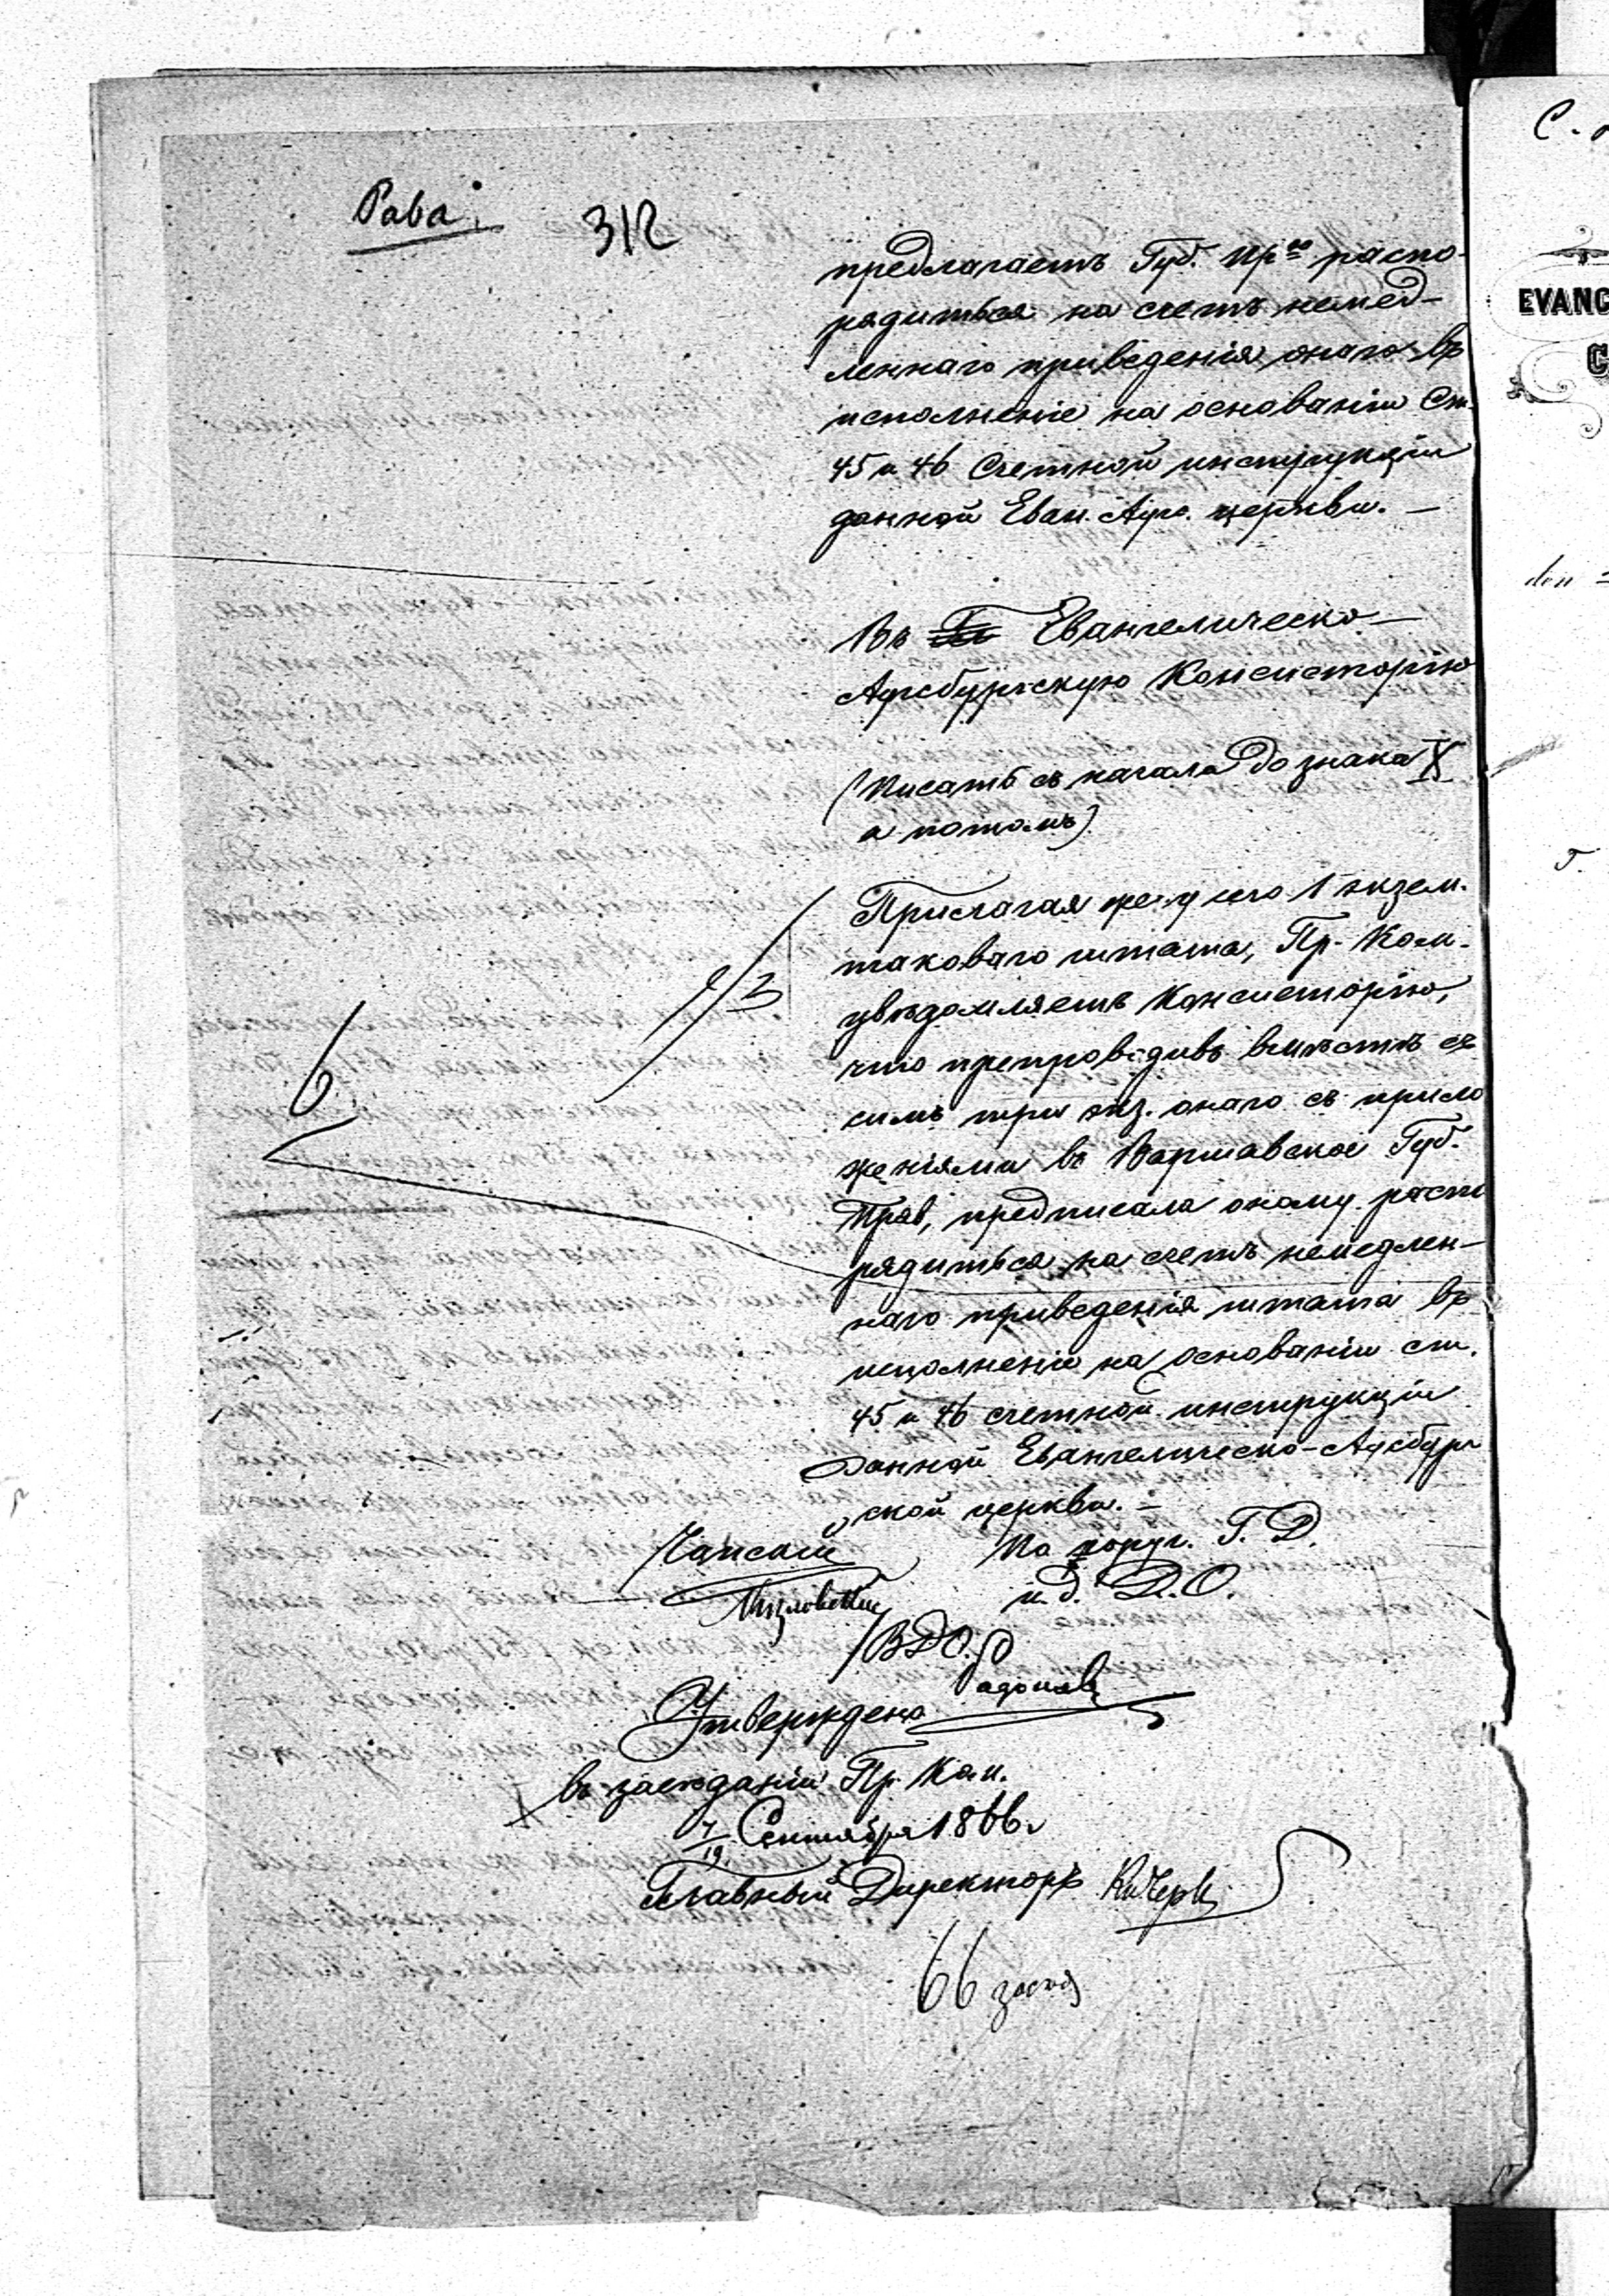 Рава.
312
предлагаетъ Губ. Пр<sup>ію</sup> распо-
рядиться на счетъ немед-
леннаго приведенія онаго въ
исполненіе на основаніи Ст.
45 и 46 Счетной инструкціи
данной Еван. Аугс. церкви. —
Въ Евангелическо-
Аугсбургскую Консисторію
(Писать съ начала до знака X
а потомъ)
Прилагая при семъ 1 экзем.
таковаго штата, Пр. Ком.
увѣдомляетъ Консисторію,
что препроводивъ вмѣстѣ съ
симъ три экз. онаго съ прило
женіями въ Варшавское Губ.
Прав, предписала оному распо
рядиться на счетъ немедлен-
наго приведенія штата въ
исполненіе на основаніи ст.
45 и 46 счетной инструкціи
данной Евангелическо-Аугсбург
ской церкви. —
По поруч. Г. Д.
и. д. Д. О.
В Д О.
Утверждено
въ засѣданіи Пр. Ком.
7/19 Сентября 1866 г
Главный Директоръ
66 засѣд
С.
EVANG
C
den